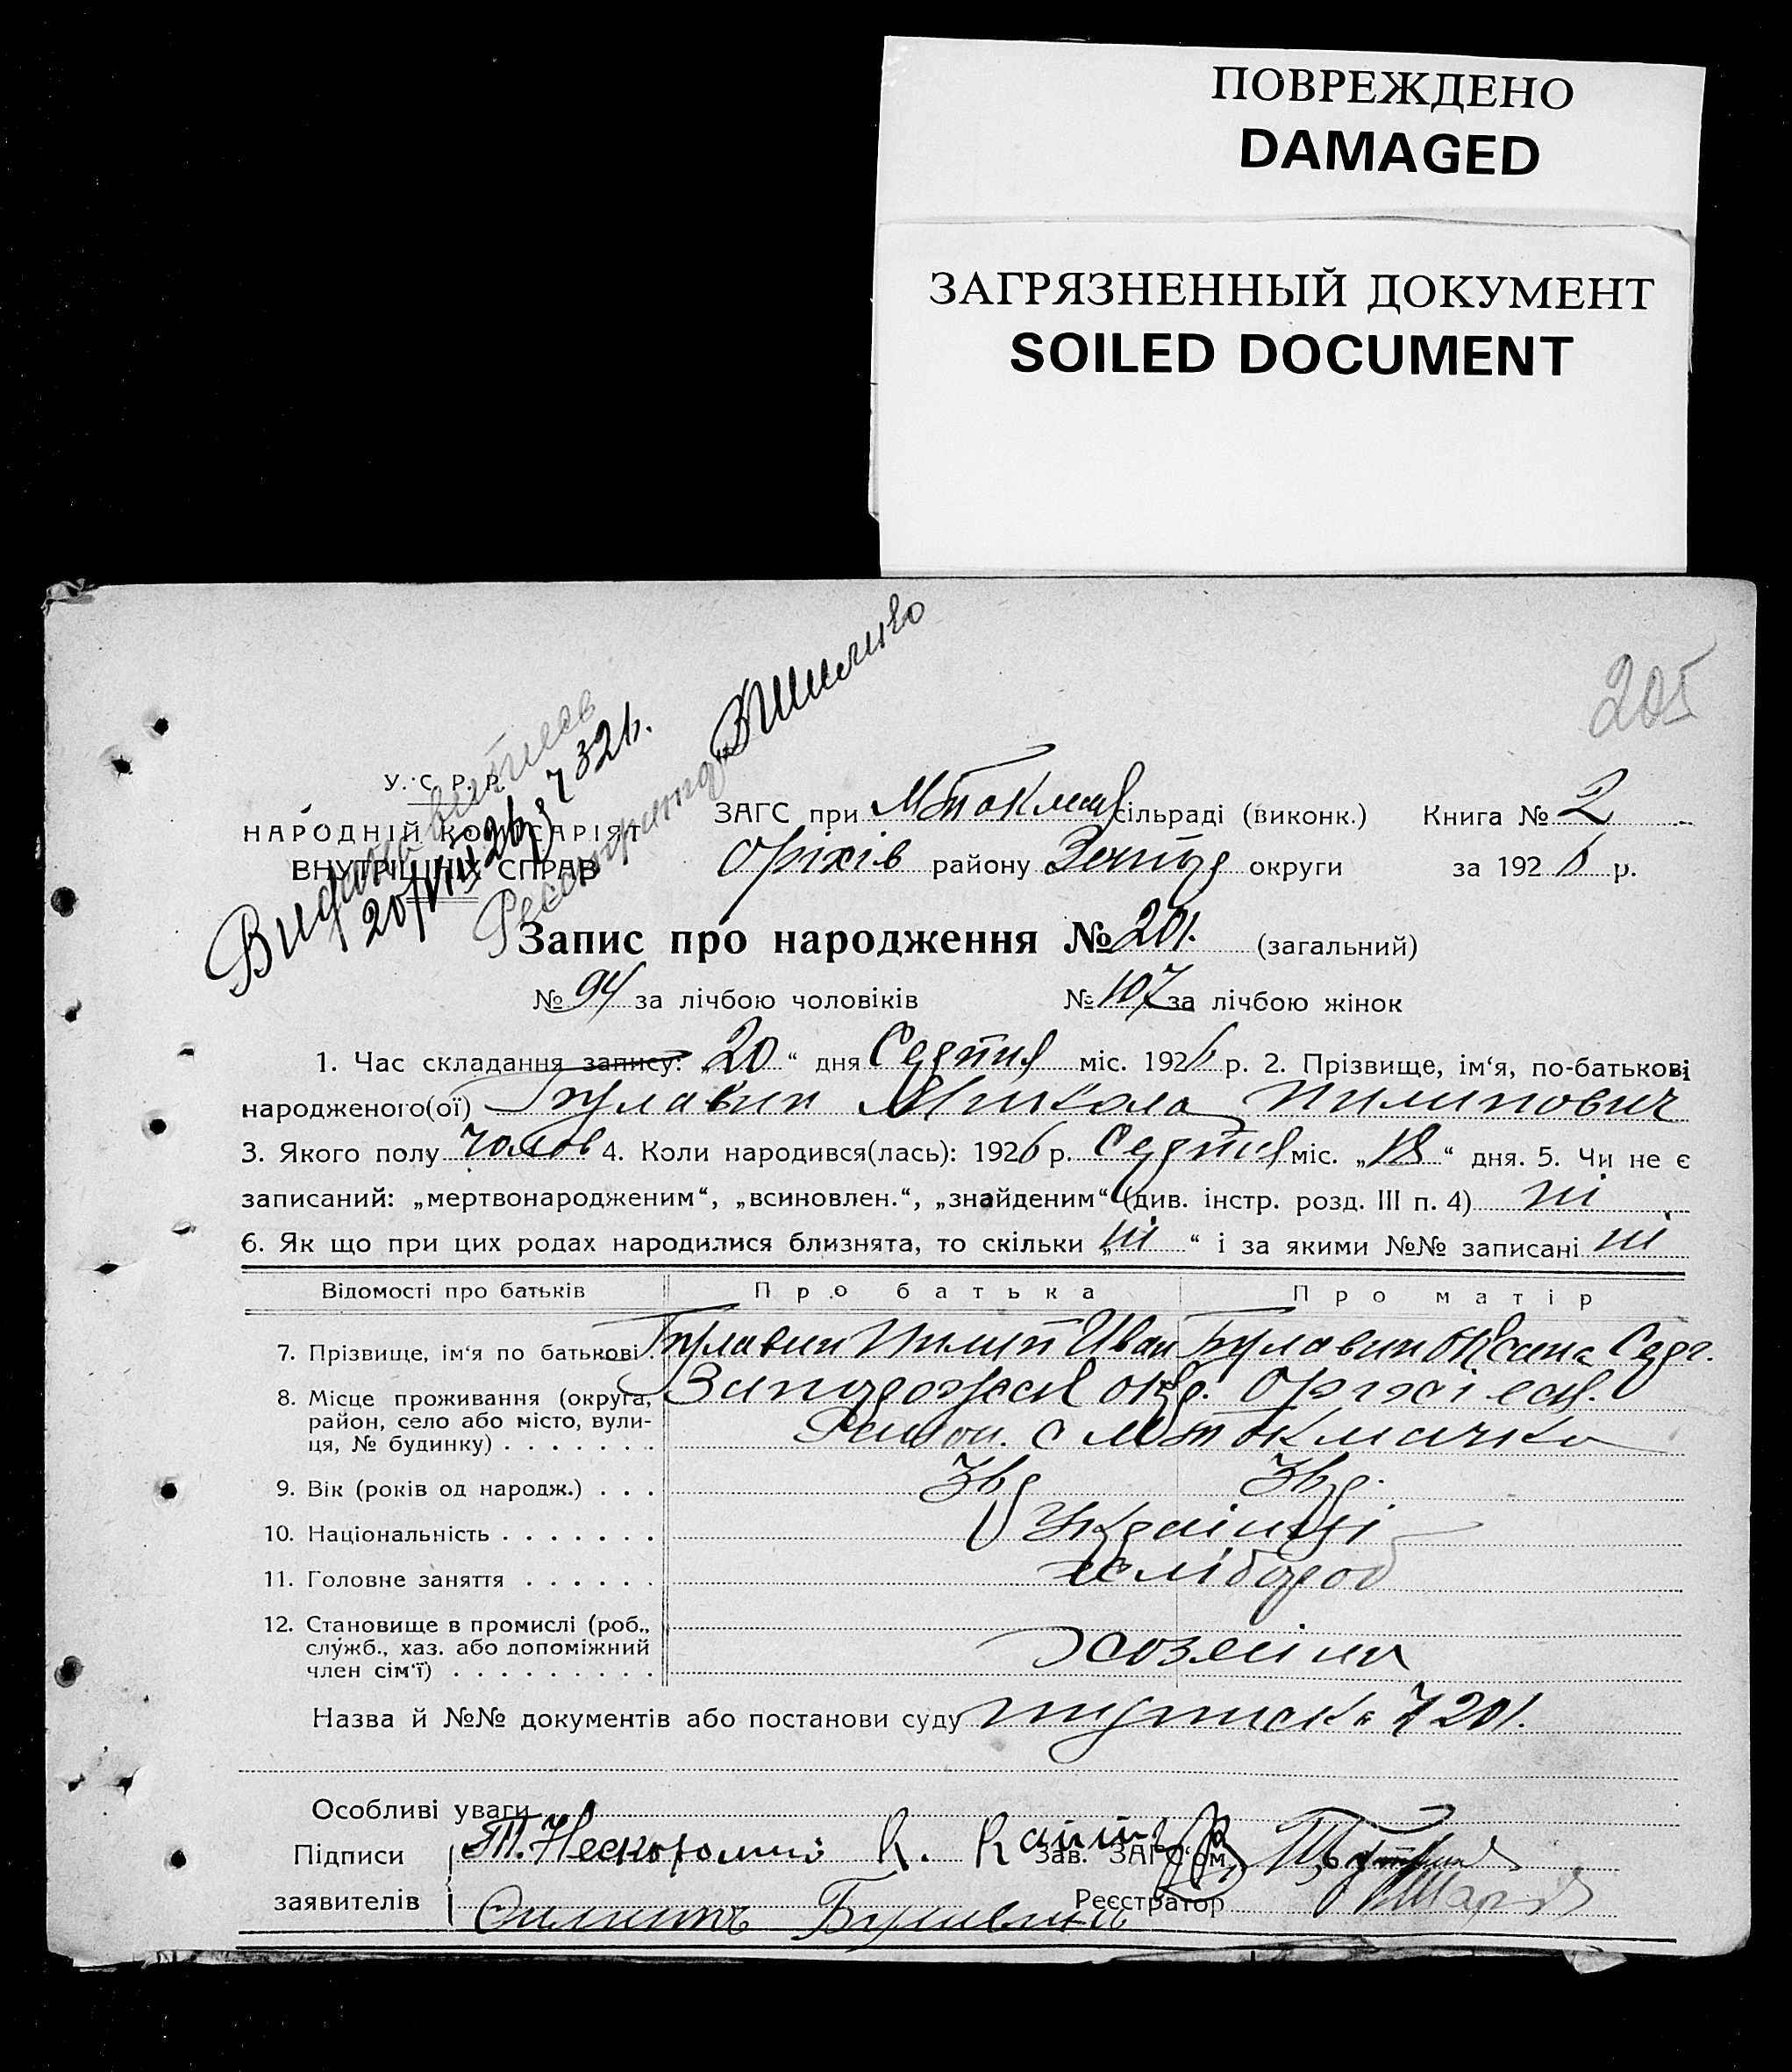 ПОВРЕЖДЕНО
DAMAGED
ЗАГРЯЗНЕННЫЙ ДОКУМЕНТ
SOILED DOCUMENT
205
У. С. Р. Р.
НАРОДНІЙ КОМІСАРІЯТ
ВНУТРІШНІХ СПРАВ
Видано
20/VIII 26р
ЗАГС при М Токмац сільраді (виконк.) Книга № 2
Оріхів району Запор округи за 1926 р.
Запис про народження № 201. (загальний)
№ 94 за лічбою чоловіків № 107 за лічбою жінок
1. Час складання запису: „20“ дня Серпня міс. 1926 р. 2. Прізвище, ім‘я, по-батькові
народженого(ої) Булавин Микола Пилипович
3. Якого полу чолов 4. Коли народився(лась): 1926 р. Серпня міс. „18“ дня. 5. Чи не є
записаний: „мертвонародженим“, „всиновлен.“, „знайденим“ (див. інстр. розд. III п. 4) ні
6. Як що при цих родах народилися близнята, то скільки „ні“ і за якими №№ записані ні
Відомості про батьків Про батька Про матір
7. Прізвище, ім‘я по батькові. Булавин Пилип Иван Булавин Оксана Серг.
8. Місце проживання (округа, район, село або місто, вулиця, № будинку) Запорожськ окр. Оріхівськ.
Район. с М Токмачка
9. Вік (років од народж.) 36 р 36 р.
10. Національність Українці
11. Головне заняття хлібороб
12. Становище в промислі (роб., служб., хаз. або допоміжний член сім‘ї) хозяіни
Назва й №№ документів або постанови суду підписка № 201.
Особливі уваги
Підписи Т. Нескоромний К. Зав. ЗАГС‘ом
заявителів Филипъ Булавинъ Реєстратор